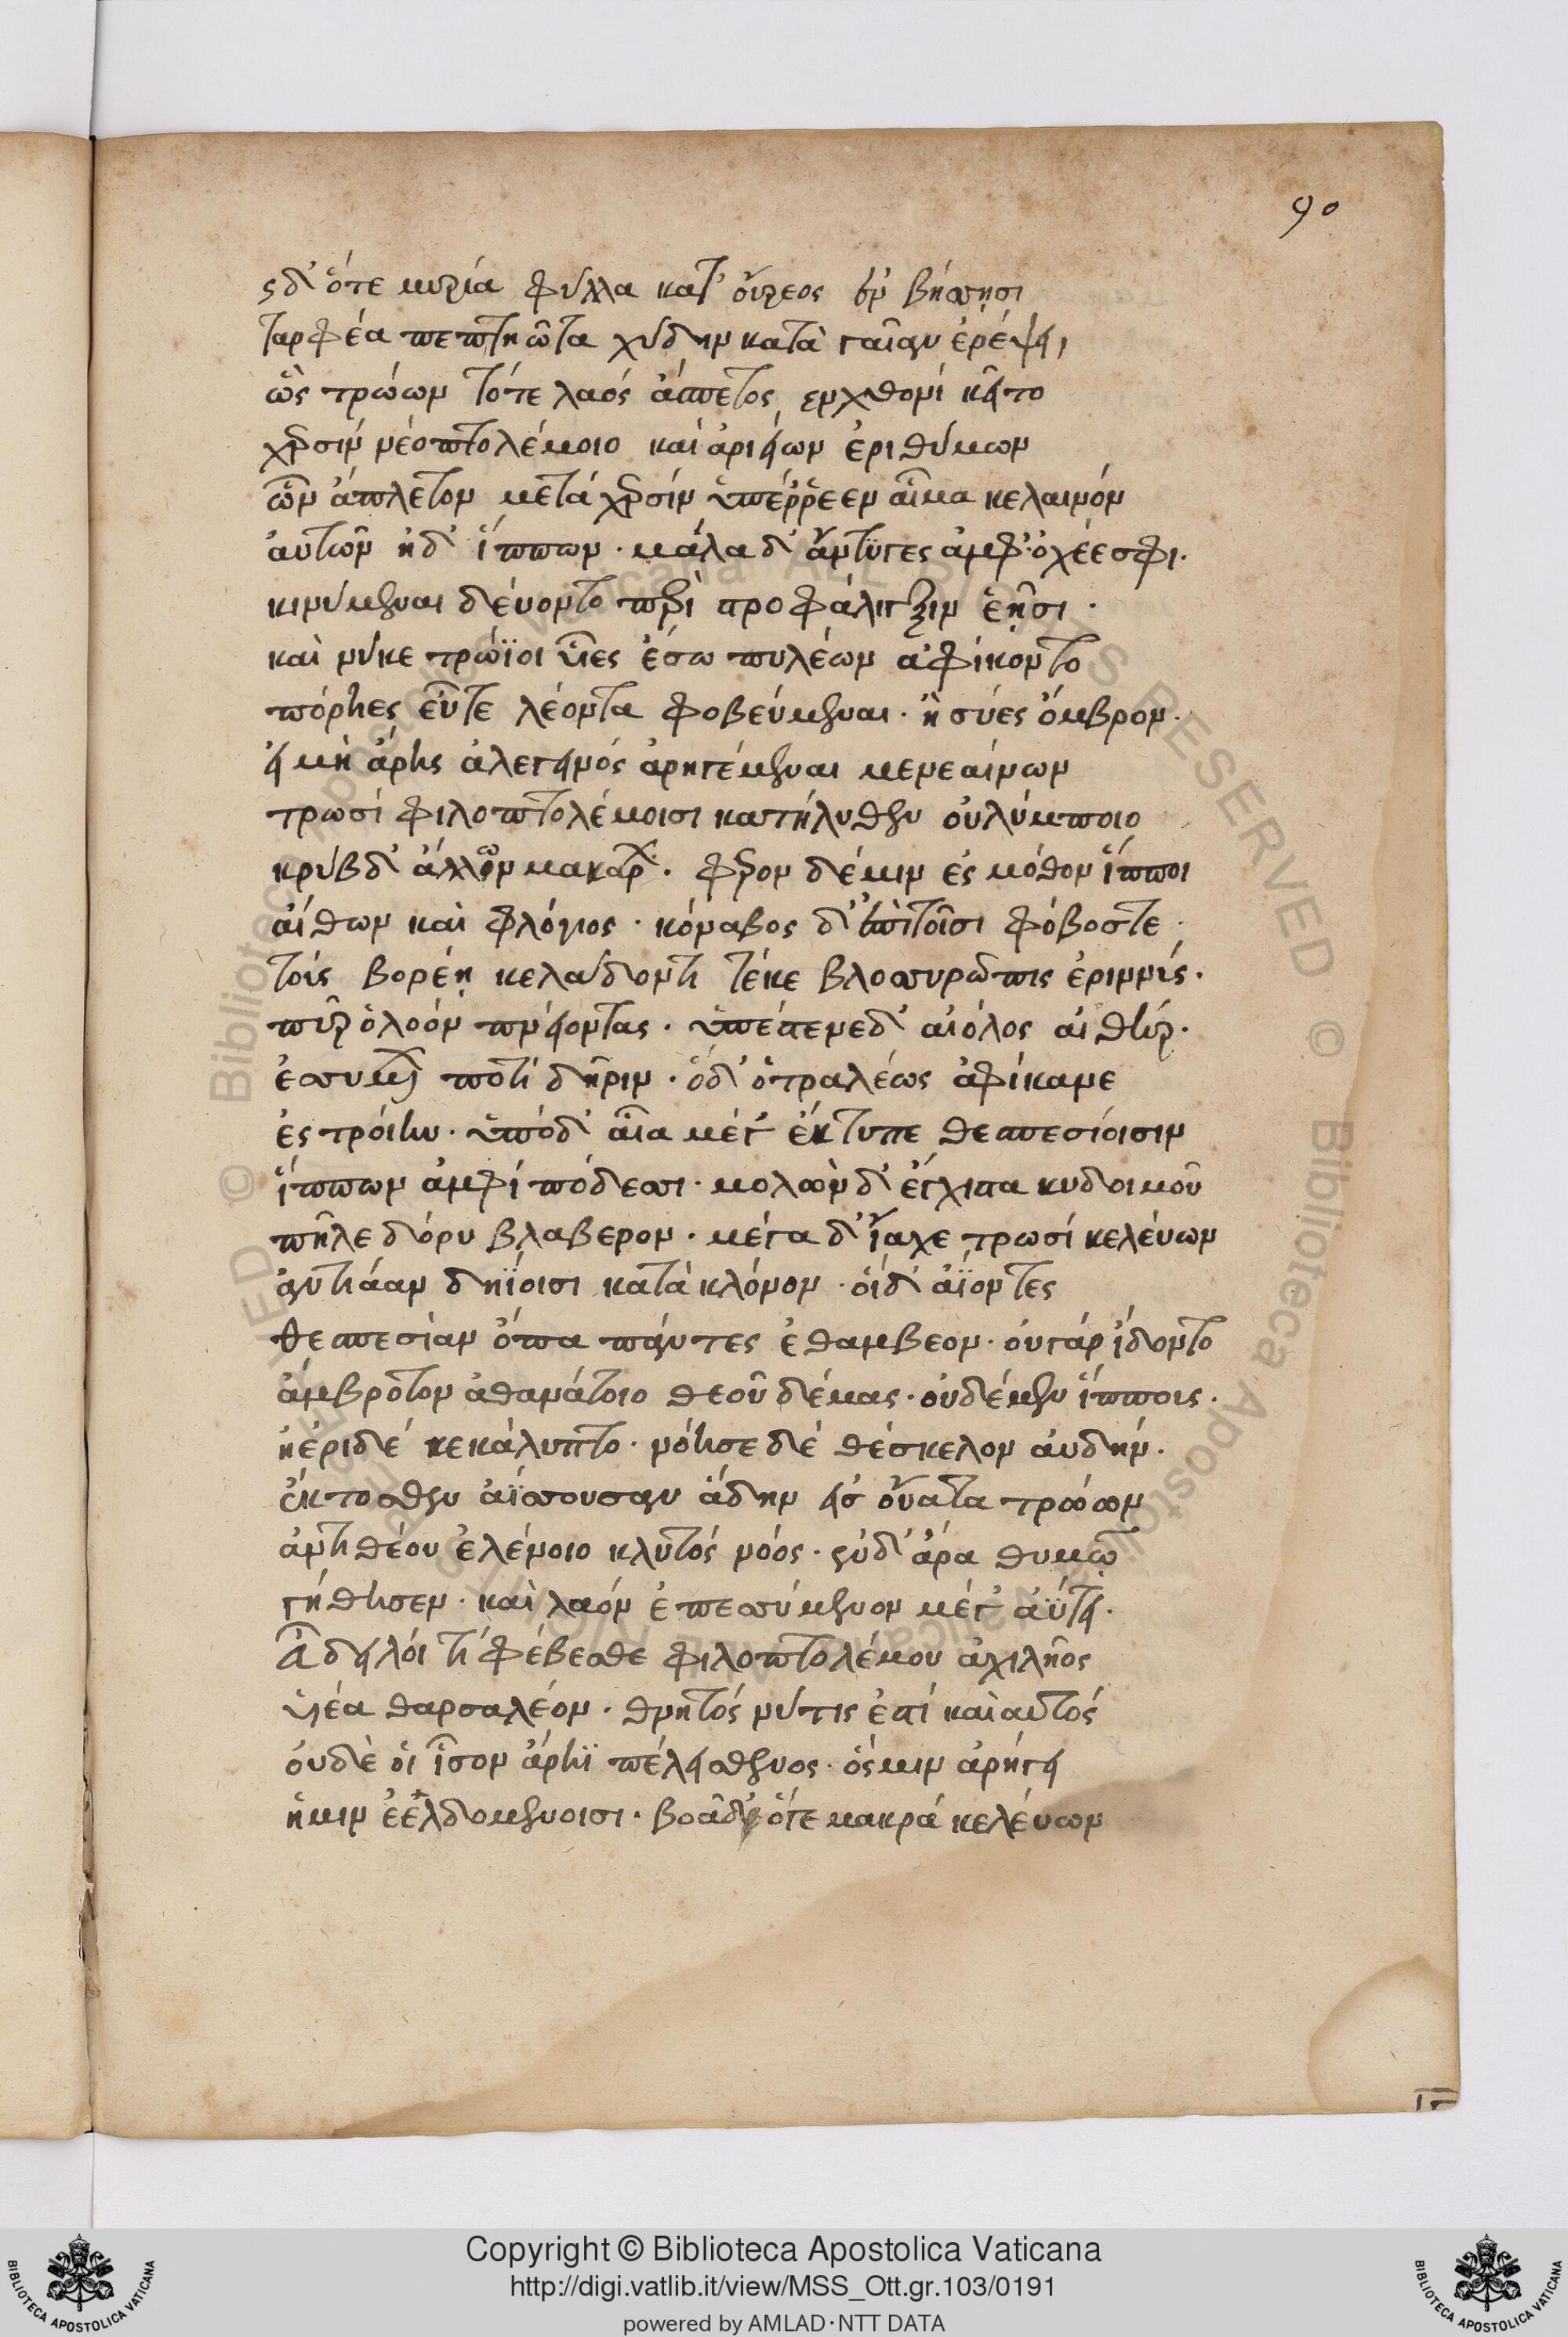 90
ς δ' ὅτε μυρία φύλλα κατ' οὔρεος ἐν βήσσῃσι
ταρφέα πεπτηῶτα χύδην κατὰ γαῖαν ἐρέψει,
ὣς τρώων τότε λαός ἄσπετος ἐν χθονί κεῖτο
χερσίν νεοπτολέμοιο και ἀργείων ἐριθύμων
ὧν ἄπλετον μετά χερσίν ὑπέρρεεν αἷμα κελαινόν
αὐτῶν ἠδ' ἵππων · μάλα δ' ἄντυγες ἀμφ' ὀχέεσφι ·
κινύμεναι δεύοντο περὶ στροφάλιγξιν ἑῆσι ·
καὶ νύκε τρώϊοι υἷες ἔσω πυλέων ἀφίκοντο
πόρτιες εὖτε λέοντα φοβεύμεναι · ἢ σύες ὄμβρον ·
εἰ μὴ ἄρης ἀλεγεινός ἀρηγέμεναι μενεαίνων
τρωσί φιλοπτολέμοισι κατήλυθεν οὐλύμποιο
κρύβδ' ἄλλων μακάρων · φέρον δέ μιν ἐς μόθον ἵπποι
αἴθων καὶ φλόγιος · κόναβος δ' ἐπὶ τοῖσι φόβος τε ·
τοὶς βορέῃ κελάδοντι τέκε βλοσυρῶπις ἐριννίς ·
πῦρ ὀλοόν πνείοντας · ὑπέστενε δ' αἰόλος αἰθήρ ·
ἐσσυμένων ποτί δῆριν · ὁ δ' ὀτραλέως ἀφίκανε
ἐς τροίην · ὑπό δ' αἶα μέγ' ἔκτυπε θεσπεσίοισιν
ἵππων ἀμφί πόδεσσι · μολὼν δ' ἄγχιστα κυδοιμοῦ
πῆλε δόρυ βλαβερον · μέγα δ' ἴαχε τρωσί κελεύων
ἀντιάαν δηΐοισι κατὰ κλόνον · οἱ δ' ἀΐοντες
θεσπεσίαν ὄπα πάντες ἐθαμβεον · οὐ γάρ ἴδοντο
ἄμβροτον ἀθανάτοιο θεοῦ δέμας · οὐδέ μεν ἵππους ·
ἠέρι δέ κεκάλυπτο · νόησε δέ θέσκελον αὐδήν ·
ἔκτοσθεν ἀΐσσουσαν ἅδην εἰς οὔατα τρώων
ἀντιθέου ἑλένοιο κλυτός νόος · ἐν δ' ἄρα θυμῷ
γήθησεν · καὶ λαόν ἐπεσσύμενον μέγ' ἀΰτει ·
ἆ δειλόι τί φέβεσθε φιλοπτολέμου ἀχιλῆος
υἱέα θαρσαλέον · θνητός νύ τις ἐστί καὶ αὐτός
οὐδὲ οἱ ἶσον ἄρηϊ πέλει σθένος · ὅς μιν ἀρήγει
ἥμιν ἐελδομενοισι · βοᾷ δ' ὅγε μακρά κελέυων
Copyright © Biblioteca Apostolica Vaticana
http://digi.vatlib.it/view/MSS_Ott.gr.103/0191
powered by AMLAD·NTT DATA